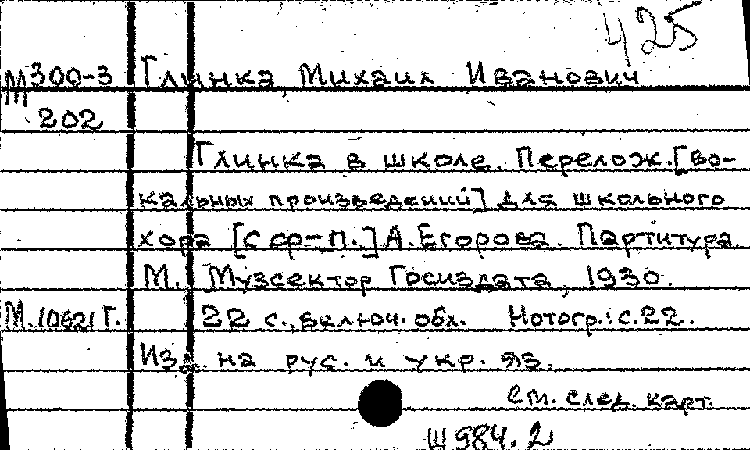 425
М 300-3 Глинка, Михаил Иванович
202
Глинка в школе. Перелож. [во-
кальных произведений] для школьного
хора [с ф-п.] А. Егорова. Партитура.
М. Музсектор Госиздата, 1930.
М.10621 Г. 22 с., включ. обл. Нотогр.: с.22.
Изд. на рус. и укр. яз.
См. след. карт.
Ш984.2